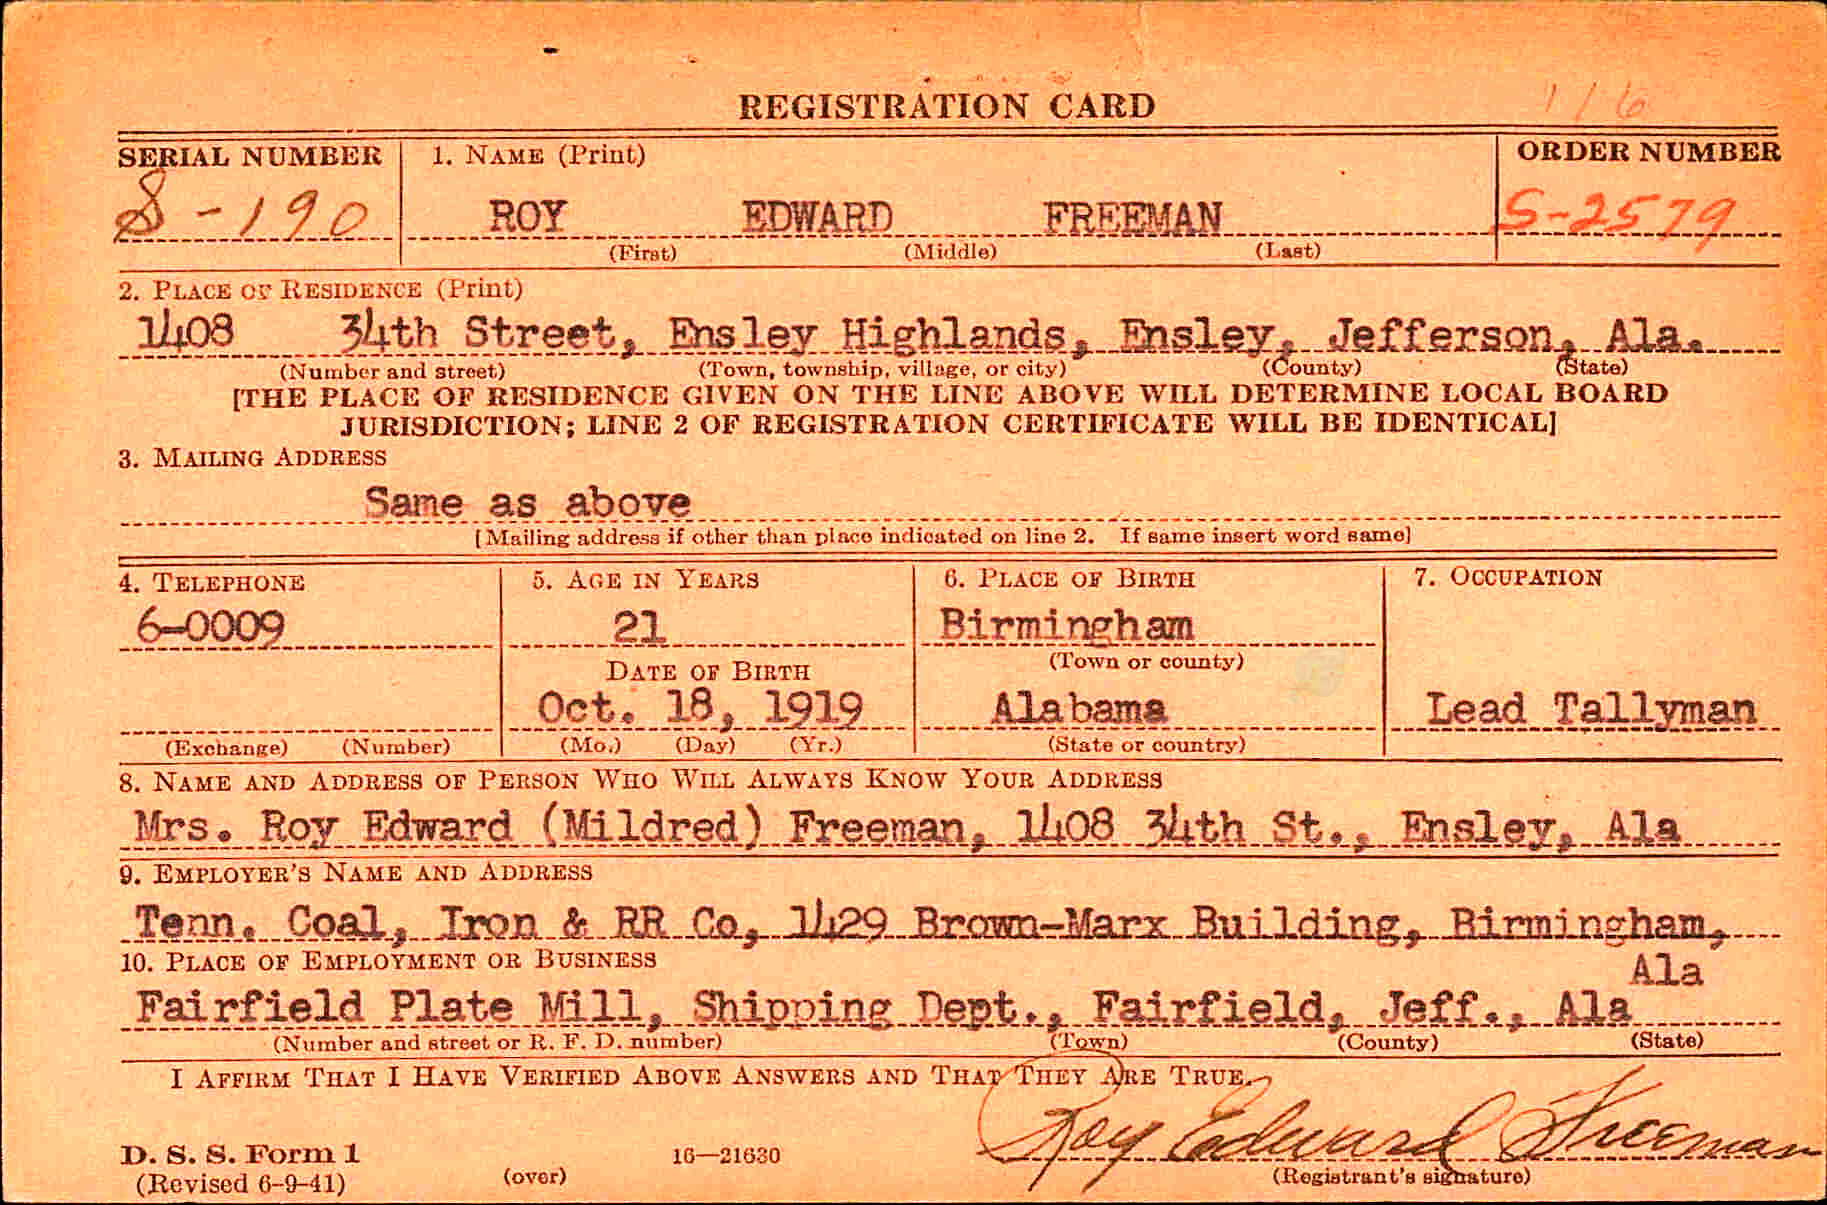 116
REGISTRATION CARD
SERIAL NUMBER 1. NAME (Print) ORDER NUMBER
S-190 ROY EDWARD FREEMAN S-2579
(First) (Middle) (Last)
2. PLACE OF RESIDENCE (Print)
1408 34th Street, Ensley Highlands, Ensley, Jefferson, Ala.
(Number and street) (Town, township, village, or city) (County) (State)
[THE PLACE OF RESIDENCE GIVEN ON THE LINE ABOVE WILL DETERMINE LOCAL BOARD
JURISDICTION; LINE 2 OF REGISTRATION CERTIFICATE WILL BE IDENTICAL]
3. MAILING ADDRESS
Same as above
[Mailing address if other than place indicated on line 2. If same insert word same]
4. TELEPHONE 5. AGE IN YEARS 6. PLACE OF BIRTH 7. OCCUPATION
6-0009 21 Birmingham
DATE OF BIRTH (Town or county)
Oct. 18, 1919 Alabama Lead Tallyman
(Exchange) (Number) (Mo.) (Day) (Yr.) (State or country)
8. NAME AND ADDRESS OF PERSON WHO WILL ALWAYS KNOW YOUR ADDRESS
Mrs. Roy Edward (Mildred) Freeman, 1408 34th St., Ensley, Ala
9. EMPLOYER'S NAME AND ADDRESS
Tenn. Coal, Iron & RR Co, 1429 Brown-Marx Building, Birmingham,
10. PLACE OF EMPLOYMENT OR BUSINESS Ala
Fairfield Plate Mill, Shipping Dept., Fairfield, Jeff., Ala
(Number and street or R. F. D. number) (Town) (County) (State)
I AFFIRM THAT I HAVE VERIFIED ABOVE ANSWERS AND THAT THEY ARE TRUE.
Roy Edward Freeman
D. S. S. Form 1 16—21630
(Revised 6-9-41) (over) (Registrant's signature)